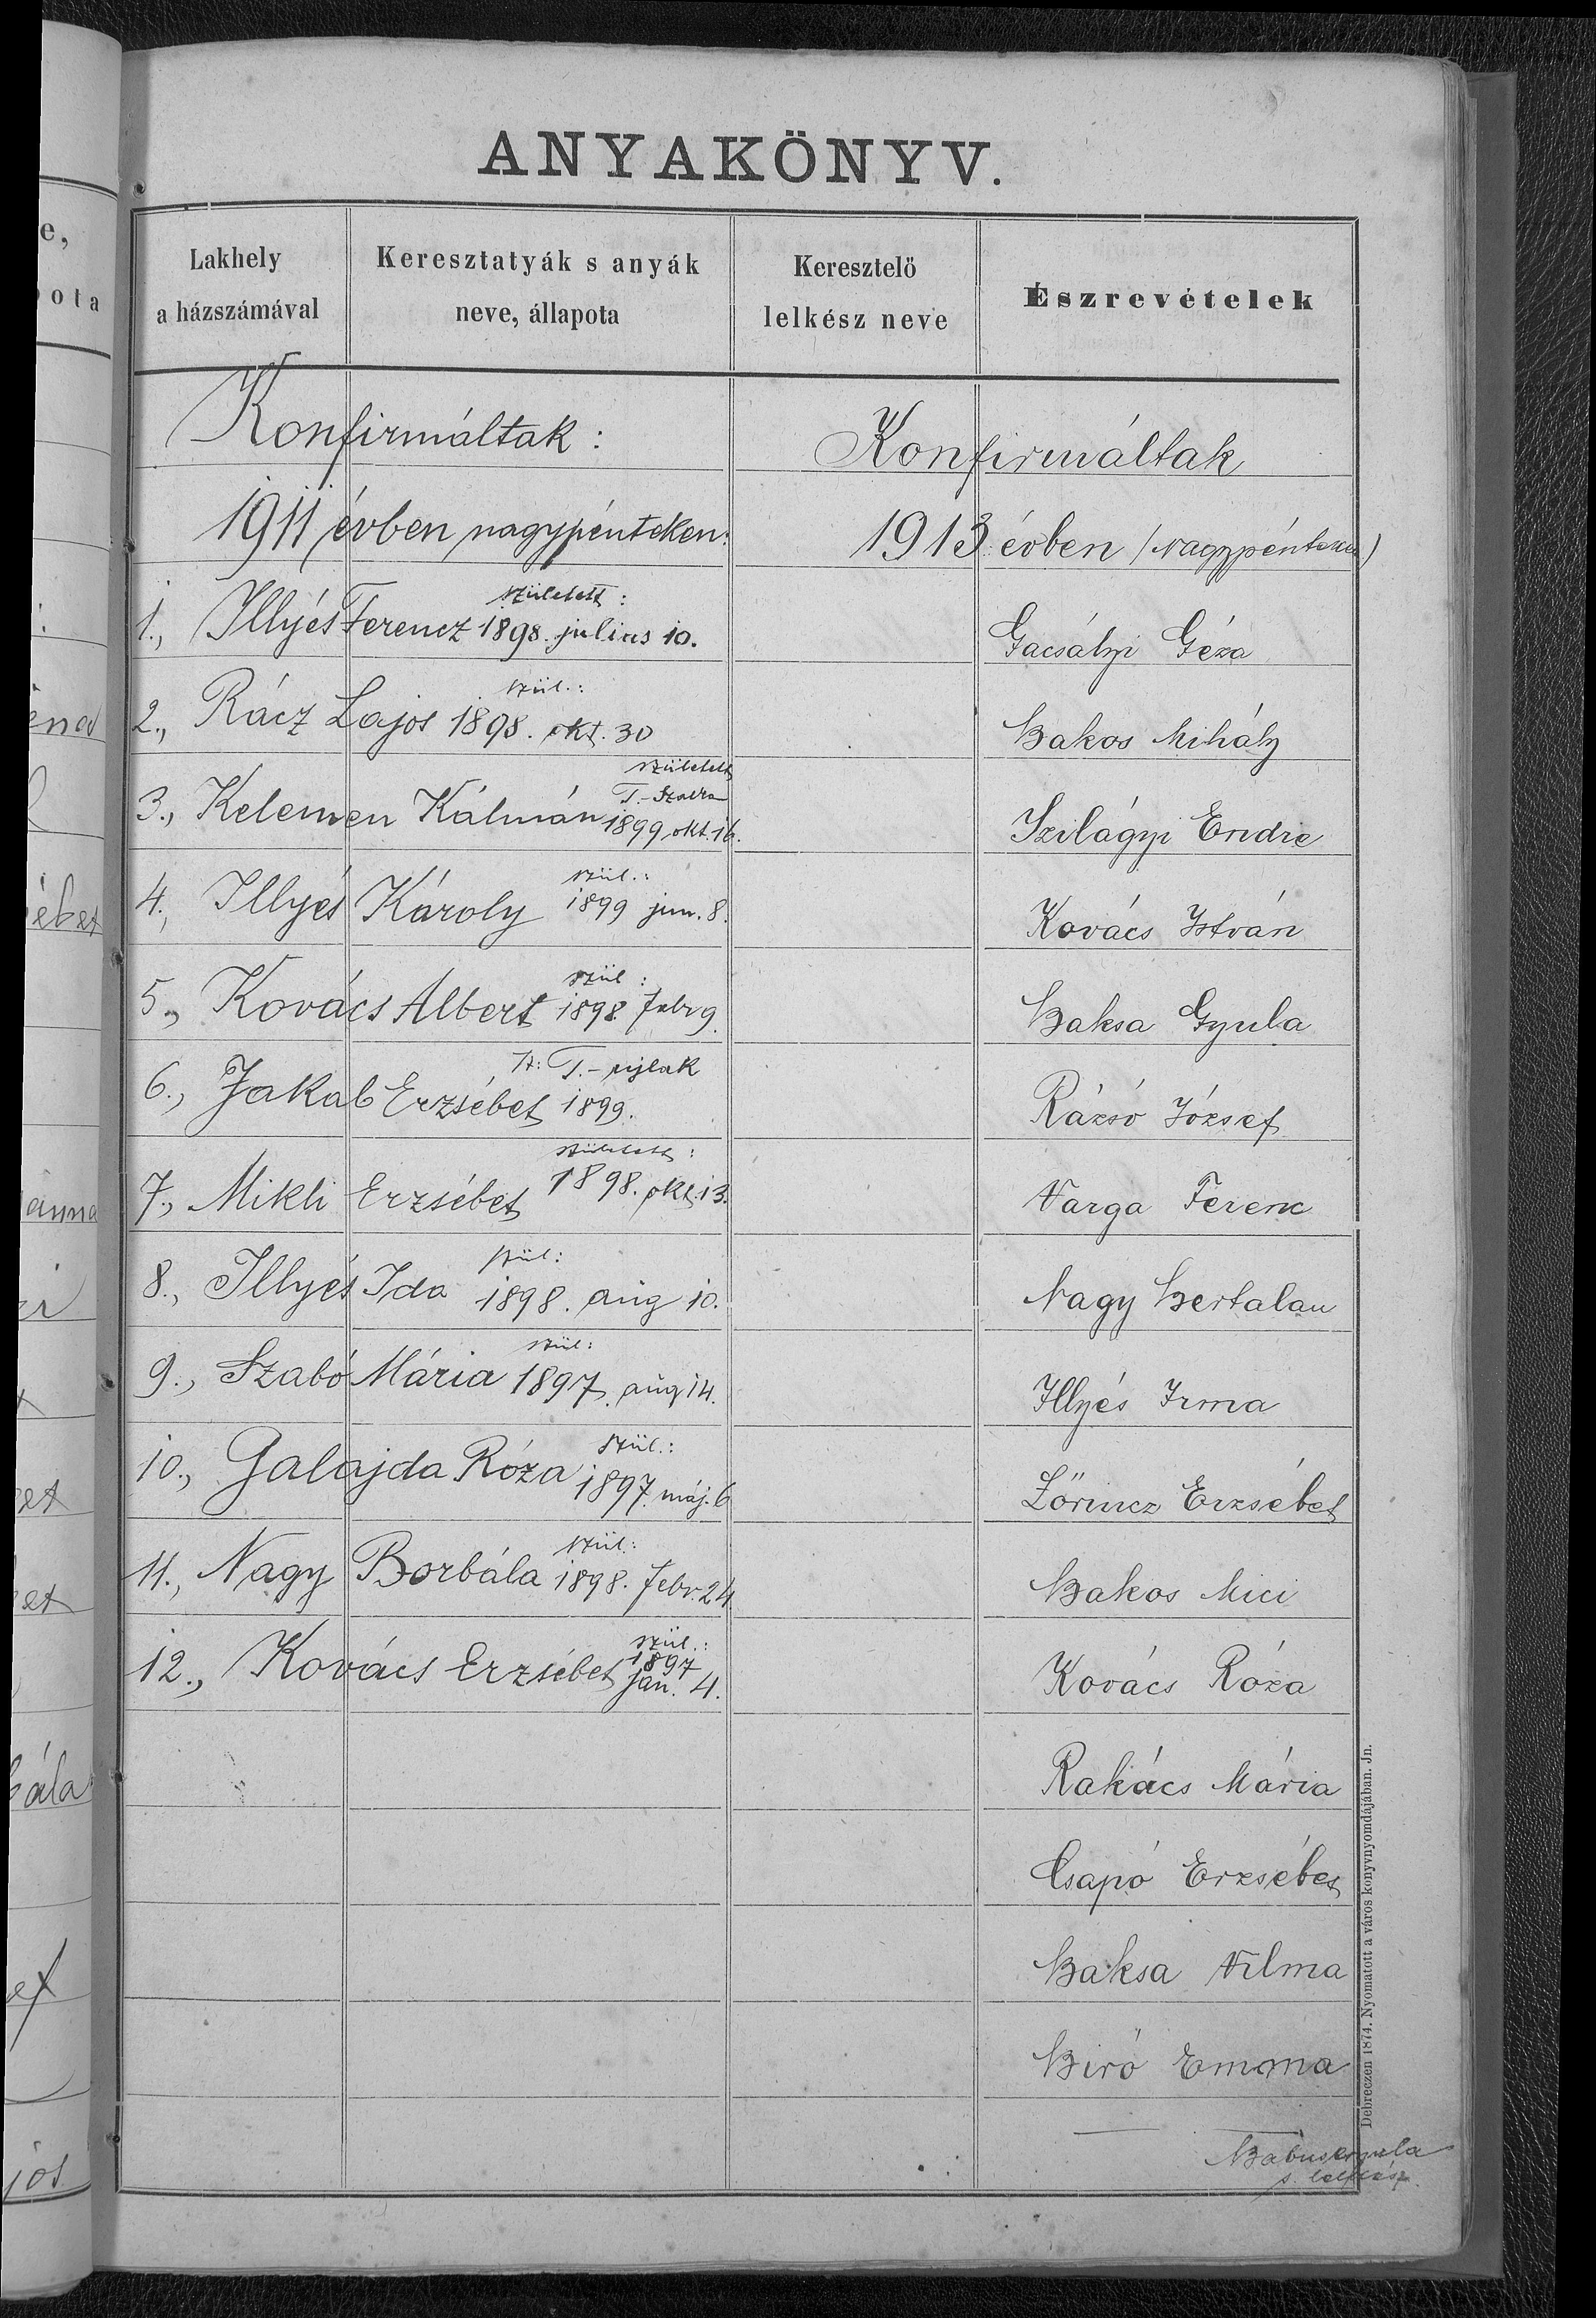 ANYAKÖNYV.
Lakhely
a házszámával
Keresztatyák s anyák
neve, állapota
Keresztelö
lelkész neve
Észrevételek
Konfirmáltak:
1911 évben nagypénteken:
született:
1., Illyés Ferencz 1898. julius 10.
szül.:
2., Rácz Lajos 1898. okt. 30
született
3., Kelemen Kálmán 1899 okt. 16.
szül.:
4., Illyés Károly 1899 jun. 8.
szül:
5., Kovács Albert 1898 Febr 9.
Sz: T.-ujlak
6., Jakab Erzsébet 1899.
született:
7., Mikli Erzsébet 1898. okt. 13.
szül:
8., Illyés Ida 1898. aug 10.
szül:
9., Szabó Mária 1897. aug 14.
szül.:
10., Galajda Róza 1897. máj. 6
szül:
11., Nagy Borbála 1898. Febr. 24.
szül.:
12., Kovács Erzsébet 1897 jan. 4.
Konfirmáltak
1913 évben (Nagypénteken)
Gacsályi Géza
Bakos Mihály
Szilágyi Endre
Kovács István
Baksa Gyula
Rázsó József
Varga Ferenc
Nagy Bertalan
Illyés Irma
Lőrincz Erzsébet
Bakos Mici
Kovács Róza
Rakács Mária
Csapó Erzsébet
Baksa Vilma
Biró Emma
s. lelkész
Debreczen 1874. Nyomatott a város könyvnyomdájában. Jn.
e,
ota
ena
ébet
anna
er
et
et
bála
ef
jos